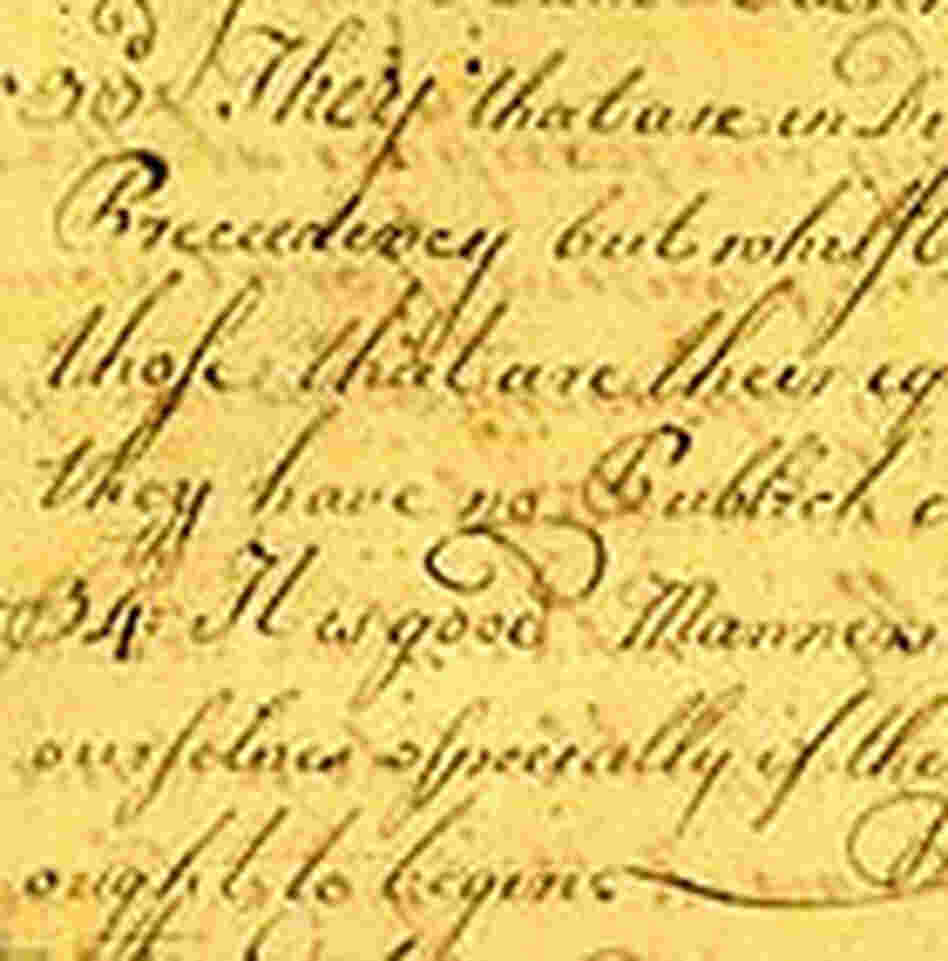 33 They that are in Di
Preceedency but whilst
those that are their eq
they have no Publick c
34 It is good Manners
ourselves especially if the
ought to begin